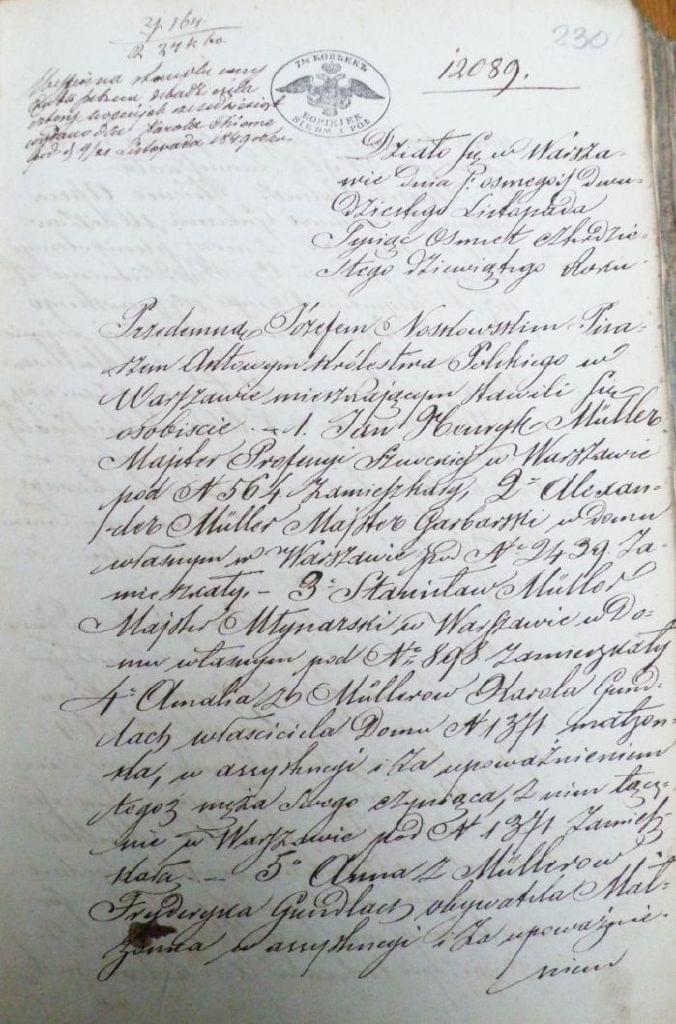 230
12089.
7½ КОПѢЕКЪ
KOPIEJEK
SIEDM I PÓŁ
Działo się w Warsza-
wie dnia /: osmego :/ Dwu-
dziestego Listopada
Tysiąc Osmset Czterdzie-
stego dziewiątego Roku
Przedemną Józefem Noskowskim Pisa-
rzem Aktowym Królestwa Polskiego w
Warszawie mieszkającym stawili się
osobiscie. – 1. Jan Henryk Müller
Majster Profesyi Szewckiej w Warszawie
pod N 564 zamieszkały, 2° Alexan-
der Müller Majster Garbarski w domu
własnym w Warszawie pod No 2439. Za-
mieszkały, – 3° Stanisław Müller
Majster Młynarski w Warszawie w Do-
mu własnym pod No 898 zamieszkały
4° Amalia z Müllerow Karola Gund-
lach właściciela Domu N 1371 małżon-
ka, w assystencyi i za upoważnieniem
tegoż męża swego czyniąca, z nim łącz-
nie w Warszawie pod N 1371 Zamiesz-
kała – 5° Anna z Müllerow
Fryderyka Gundlach obywatela Mał-
żonka w assystencyi i za upoważnie-
niem